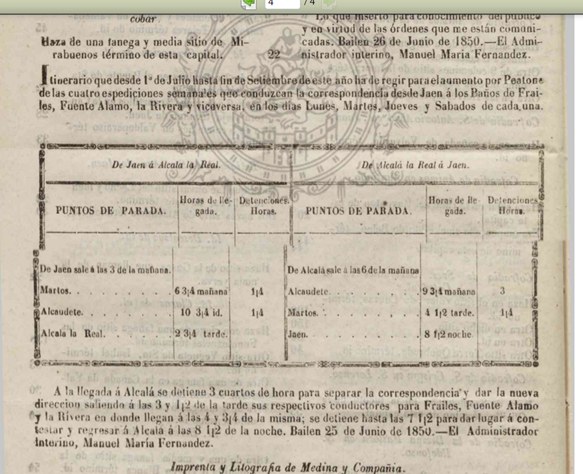 4 / 4
cobar.
Haza de una fanega y media sitio de Mi-
rabuenos término de esta capital. 22
Lo que inserto para conocimiento del público
y en virtud de las órdenes que me están comuni-
cadas. Bailen 26 de Junio de 1850.—El Admi-
nistrador interino, Manuel Maria Fernandez.
Itinerario que desde 1º de Julio hasta fin de Setiembre de este año ha de regir para el aumento por Peatones
de las cuatro espediciones semanales que conduzcan la correspondencia desde Jaen á los Baños de Frai-
les, Fuente Alamo, la Rivera y viceversa, en los dias Lunes, Martes, Jueves y Sabados de cada una.
De Jaen á Alcala la Real.
PUNTOS DE PARADA. Horas de lle- Detenciones
gada. Horas.
De Jaen sale á las 3 de la mañana.
Martos. 6 3¡4 mañana 1¡4
Alcaudete. 10 3¡4 id. 1¡4
Alcala la Real. 2 3¡4 tarde.
De Alcalá la Real á Jaen.
PUNTOS DE PARADA. Horas de lle- Detenciones
gada. Horas.
De Alcalá sale á las 6 de la mañana
Alcaudete. 9 3¡4 mañana 3
Martos. 4 1¡2 tarde. 1¡4
Jaen. 8 1¡2 noche.
A la llegada á Alcalá se detiene 3 cuartos de hora para separar la correspondencia y dar la nueva
direccion saliendo á las 3 y 1¡2 de la tarde sus respectivos conductores para Frailes, Fuente Alamo
y la Rivera en donde llegan á las 4 y 3¡4 de la misma; se detiene hasta las 7 1¡2 para dar lugar á con-
testar y regresar á Alcalá á las 8 1¡2 de la noche. Bailen 25 de Junio de 1850.—El Administrador
Interino, Manuel María Fernandez.
Imprenta y Litografia de Medina y Compañia.